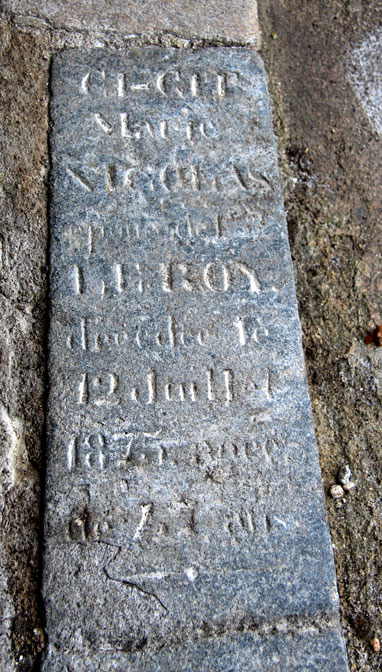 CI-GIT
Marie
NICOLAS
épouse de F
LEROY.
décédée le
12 Juillet
1875, agée
de ans.